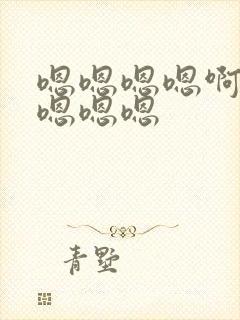 嗯嗯嗯嗯啊
嗯嗯嗯
青墅